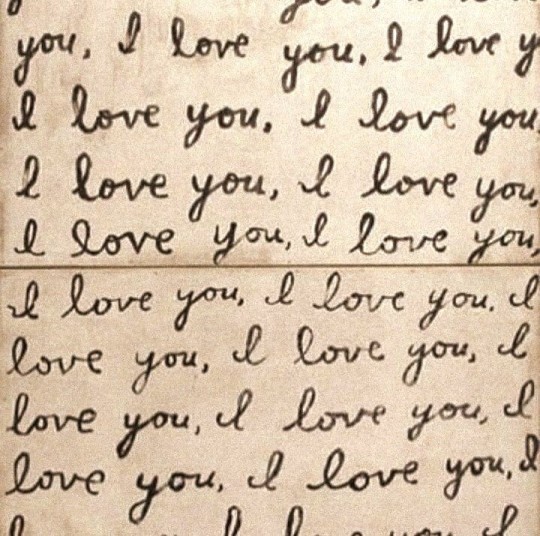 you,
you, I love you, I love y
I love you, I love you,
I love you, I love you,
I love you, I love you,
I love you, I love you, I
love you, I love you, I
love you, I love you, I
love you, I love you, I